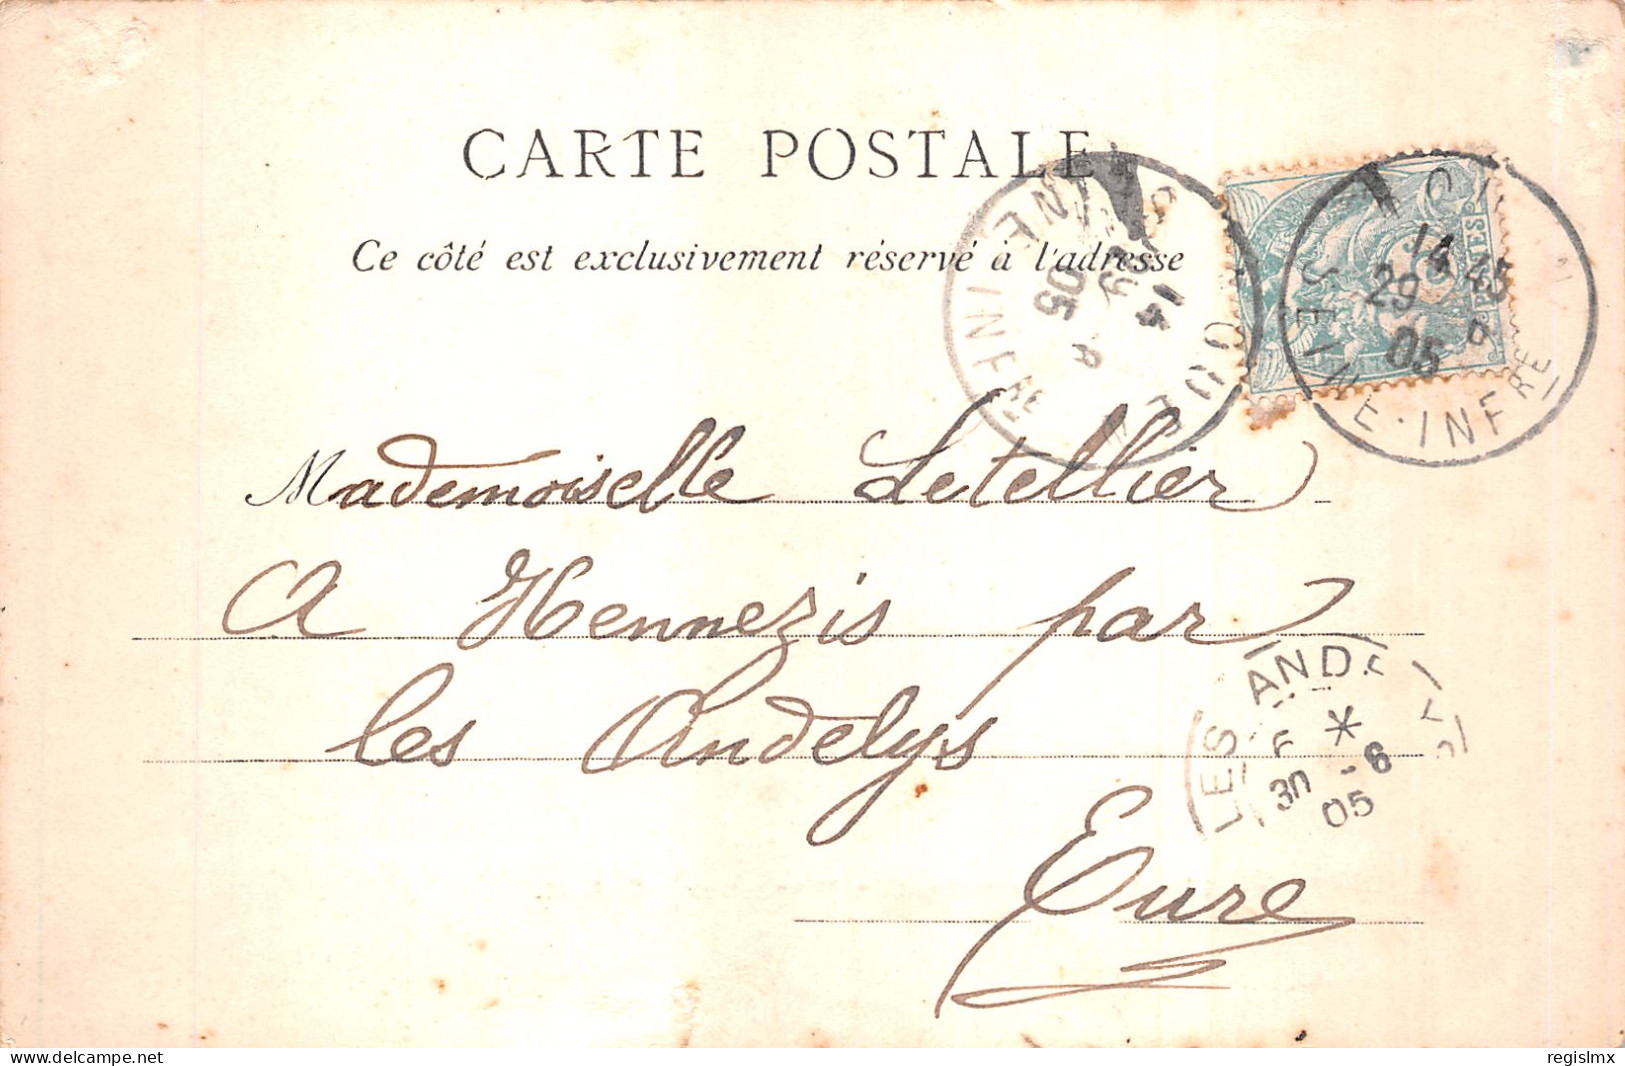 CARTE POSTALE
Ce côté est exclusivement réservé à l'adresse
14
29
05
SEINE INFRE
14 45
29
05
SEINE · INFRE
Mademoiselle Letellier
A Hennezis par
les Andelys
Eure
LES AND
*
30 -6
05
www.delcampe.net
regislmx